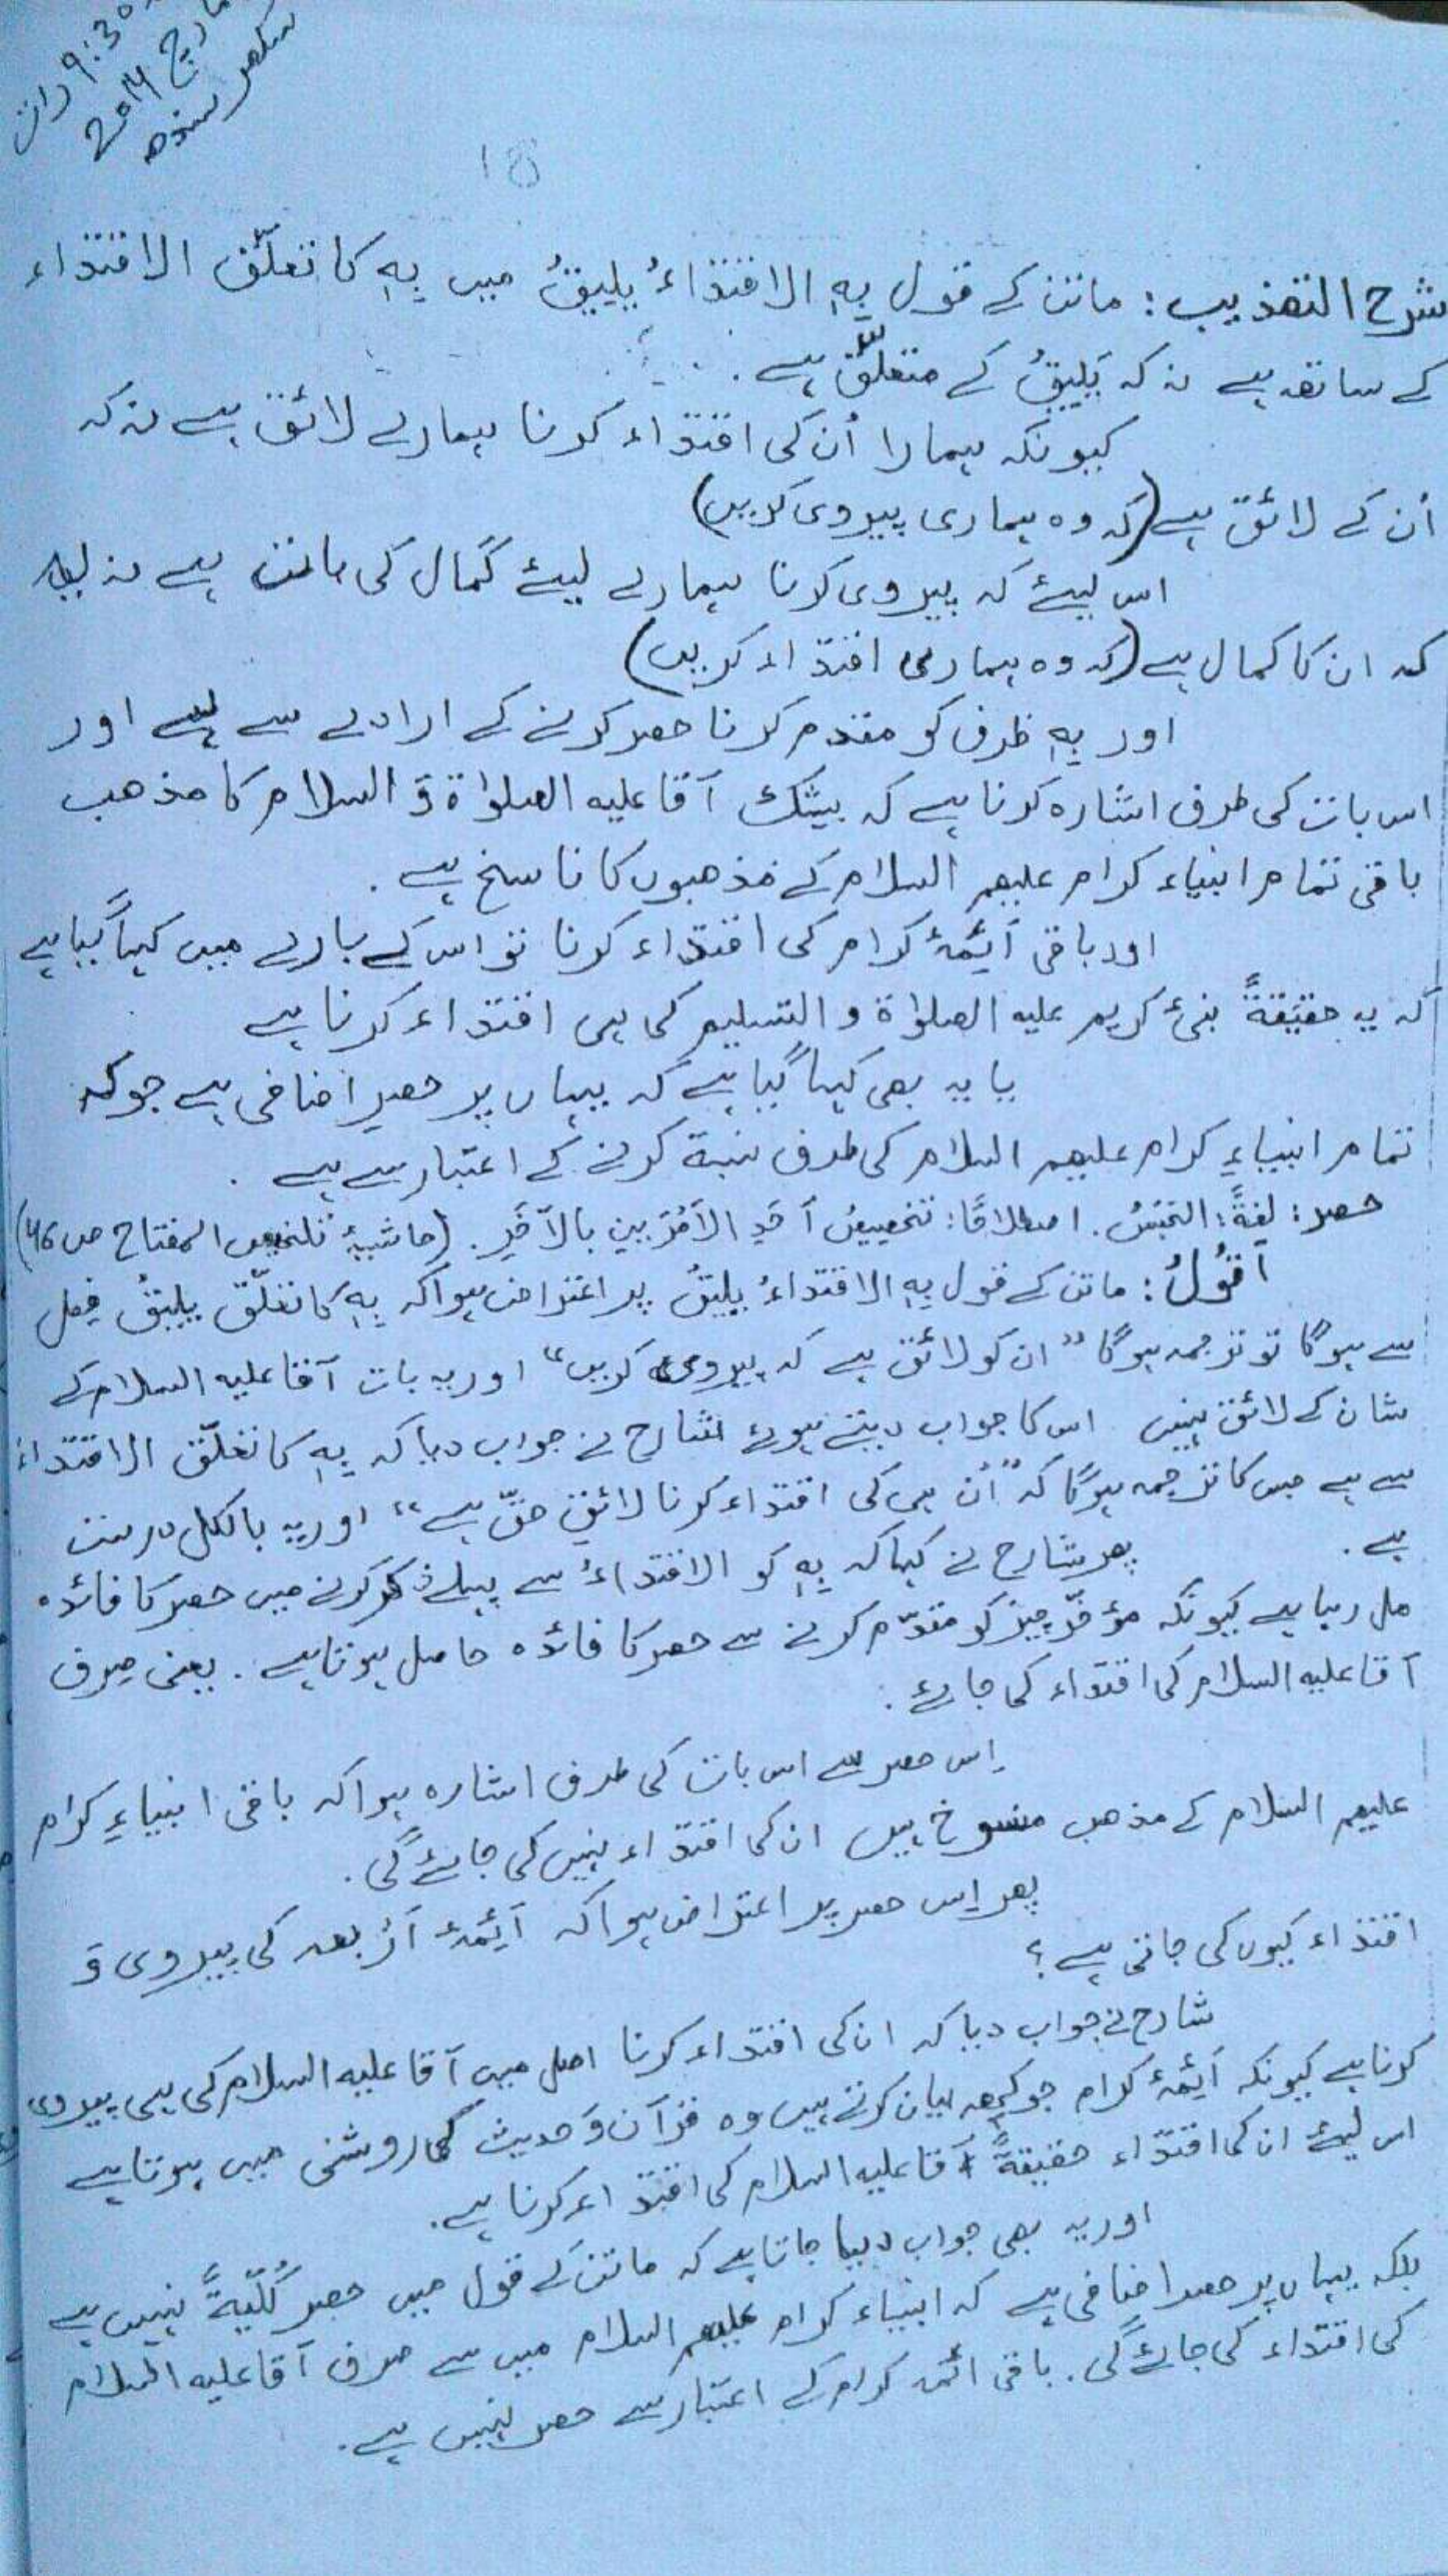 9:30 رات
مارچ 2014
سکھر سندھ
18
شرح التھذیب: ماتن کے قول بِهِ الاقتداءُ یلیقُ میں بِهِ کا تعلّق الاقتداء
کے ساتھ ہے نہ کہ یَلِیقُ کے متعلّق ہے.
کیونکہ ہمارا اُن کی اقتداء کرنا ہمارے لائق ہے نہ کہ
اُن کے لائق ہے (کہ وہ ہماری پیروی کریں)
اس لیئے کہ پیروی کرنا ہمارے لیئے کمال کی ہے نہ
کہ ان کا کمال ہے (کہ وہ ہماری اقتداء کریں)
اور بِهِ ظرف کو مقدم کرنا حصر کرنے کے ارادے سے ہے اور
اس بات کی طرف اشارہ کرنا ہے کہ بیشک آقا علیه الصلوٰة وَ السلام کا مذھب
باقی تمام انبیاء کرام علیھم السلام کے مذھبوں کا ناسخ ہے.
اور باقی اَئِمّۂ کرام کی اقتداء کرنا تو اس کے بارے میں کہا گیا ہے
کہ یہ حقیقةً نبئ کریم علیه الصلوٰة و التسلیم کی ہی اقتداء کرنا ہے
یا یہ بھی کہا گیا ہے کہ یہاں پر حصرِ اضافی ہے جو کہ
تمام انبیاءِ کرام علیھم السلام کی طرف نسبة کرنے کے اعتبار سے ہے.
حصر: لغةً: الحَبْسُ. اصطلاحًا: تخصیصُ اَحَدِ الاَمْرَیین بالآخَرِ. (حاشیۂ تلخیص المفتاح ص 46)
اَقُولُ: ماتن کے قول بِهِ الاقتداءُ یلیقُ پر اعتراض ہوا کہ بِهِ کا تعلّق یلیقُ فعل
سے ہوگا تو ترجمہ ہوگا "ان کو لائق ہے کہ پیروی کریں" اور یہ بات آقا علیه السلام کے
شان کے لائق نہیں اس کا جواب دیتے ہوئے شارح نے جواب دیا کہ بِهِ کا تعلّق الاقتداءُ
سے ہے جس کا ترجمہ ہوگا کہ "اُن ہی کی اقتداء کرنا لائقِ حقّ ہے" اور یہ بالکل درست
ہے.
پھر شارح نے کہا کہ بِهِ کو الاقتداءُ سے پہلے ذکر کرنے میں حصر کا فائدہ
مل رہا ہے کیونکہ مؤخّر چیز کو مقدّم کرنے سے حصر کا فائدہ حاصل ہوتا ہے. یعنی صرف
آقا علیه السلام کی اقتداء کی جائے.
اِس حصر سے اس بات کی طرف اشارہ ہوا کہ باقی انبیاءِ کرام
علیھم السلام کے مذھب منسوخ ہیں ان کی اقتداء نہیں کی جائے گی.
پھر اِس حصر پر اعتراض ہوا کہ اَئِمّۂ اَرْبعہ کی پیروی وَ
اقتداء کیوں کی جاتی ہے؟
شارح نے جواب دیا کہ ان کی اقتداء کرنا اصل میں آقا علیه السلام کی ہی پیروی
کرنا ہے کیونکہ اَئِمّۂ کرام جو کچھ بیان کرتے ہیں وہ قرآن وَ حدیث کی روشنی میں ہوتا ہے
اس لیئے ان کی اقتداء حقیقةً آقا علیه السلام کی اقتداء کرنا ہے.
اور یہ بھی جواب دیا جاتا ہے کہ ماتن کے قول میں حصر کُلِّیةً نہیں ہے
بلکہ یہاں پر حصر اضافی ہے کہ انبیاء کرام علیھم السلام میں سے صرف آقا علیه السلام
کی اقتداء کی جائے گی. باقی ائمہ کرام کے اعتبار سے حصر نہیں ہے.